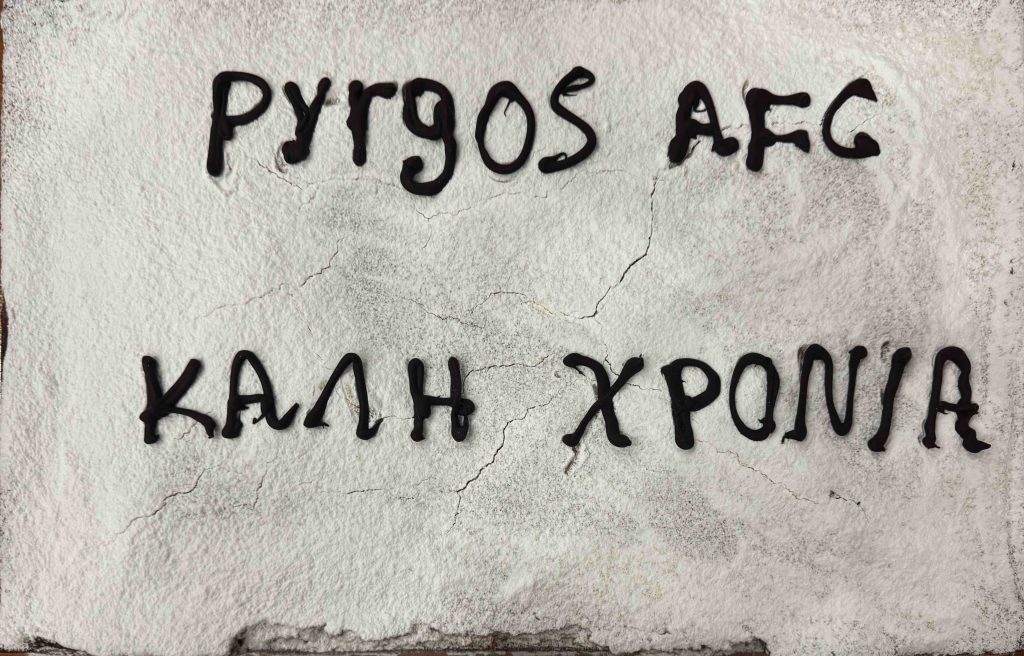 Pyrgos AFC
ΚΑΛΗ ΧΡΟΝΙΑ